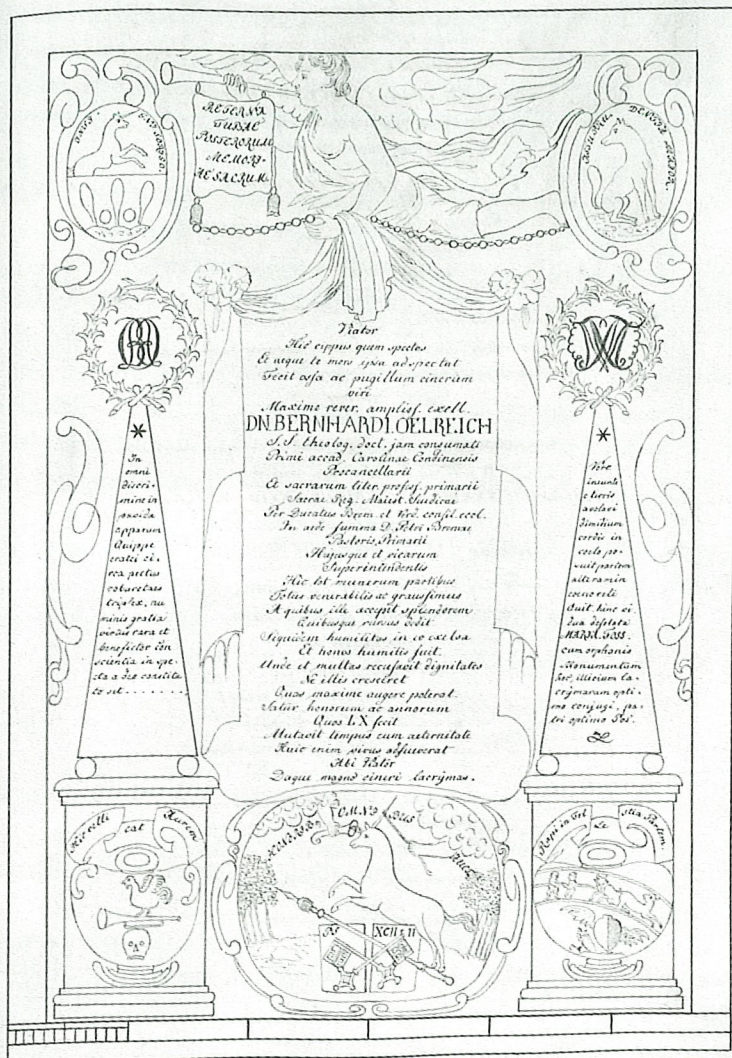 AETERNAE
TUBAE
POSTERORUM
MEMORI-
AE SACRUM.
Viator
Hic cippus quem spectas
Et aeque te mors ipsa adspectat
Tecit ossa ac pugillum cinerum
viri
Maxime rever. ampliss. excell.
DN. BERNHARDI OELREICH
S.S. theolog. doct. jam consumati
Primi accad. Carolinae Condinensis
Procancellarii
Et sacrarum liter. profess. primarii
Sacrae Reg. Maiest. Suidicai
Per Ducatus Brem. et Verd. consil. eccl.
In aede summa D. Petri Bremae
Pastoris Primarii
Hujusque et vicarum
Superintendentis
Hic tot munerum partibus
Totus venerabilis ac graussimus
A quibus ille accepit splendorem
Quibusque rursus dedit
Siquidem humilitas in eo excelsa
Et honos humilis fuit.
Unde et multas recusavit dignitates
Ne illis cresceret
Quas maxime augere poterat.
Satur honorum ac annorum
Quos LX fecit
Mutavit tempus cum aeternitate
Huic enim vivus adsueverat
Abi Viator
Daque magno cineri lacrymas.
In
omni
discri-
mine in
apparum
Quippe
cratei ci-
rca pectus
robur et aes
triplex, nu
minis gratia
virtus rara et
benefactor con
scientia in spe
cta a deo constitu
to sit.......
insunti
e terris
avolavi
dimidium
cordis in
coelo po-
suit partem
alteram in
Quit hinc vi
dua desolata
MARIA JOSS.
cum orphanis
Monumentum
hoc, illicium la-
crymarum opti-
mo conjugi, pa-
tri optimo Pos.
Hic velli
cat
Aurem
OMNI
DUS
Ps
XCII v 11
Rapi in Coe
Le
stia Partem.